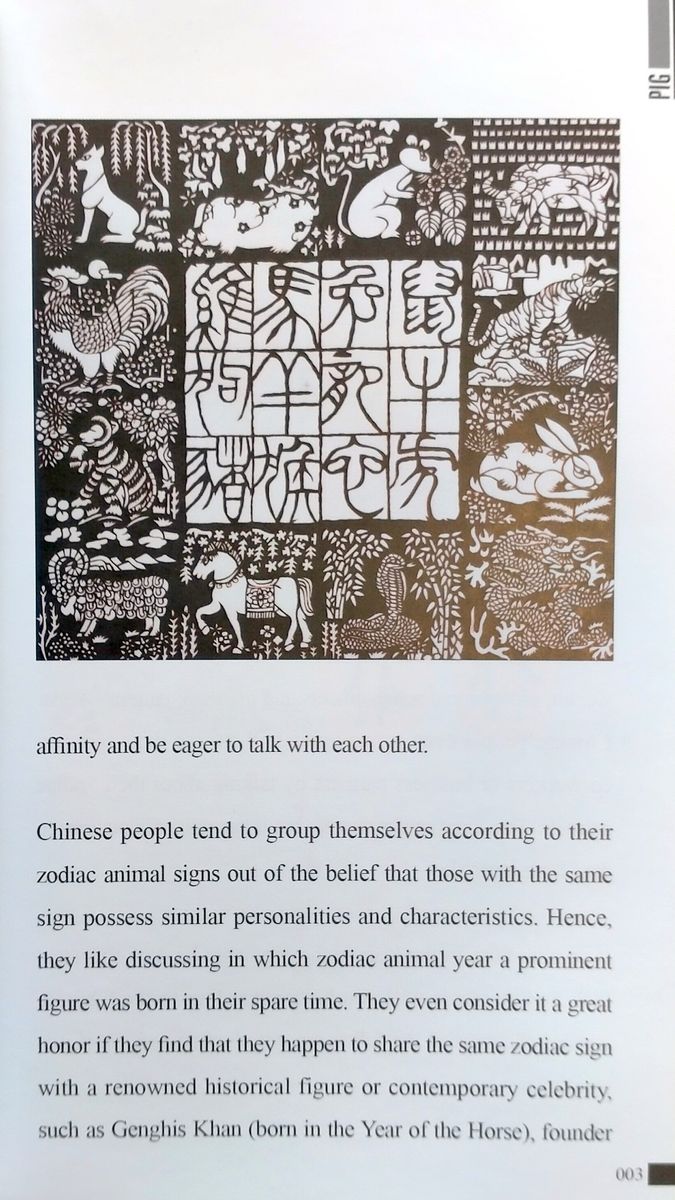 PIG
鼠牛虎
兔
馬羊猴
雞狗豬
affinity and be eager to talk with each other.
Chinese people tend to group themselves according to their
zodiac animal signs out of the belief that those with the same
sign possess similar personalities and characteristics. Hence,
they like discussing in which zodiac animal year a prominent
figure was born in their spare time. They even consider it a great
honor if they find that they happen to share the same zodiac sign
with a renowned historical figure or contemporary celebrity,
such as Genghis Khan (born in the Year of the Horse), founder
003